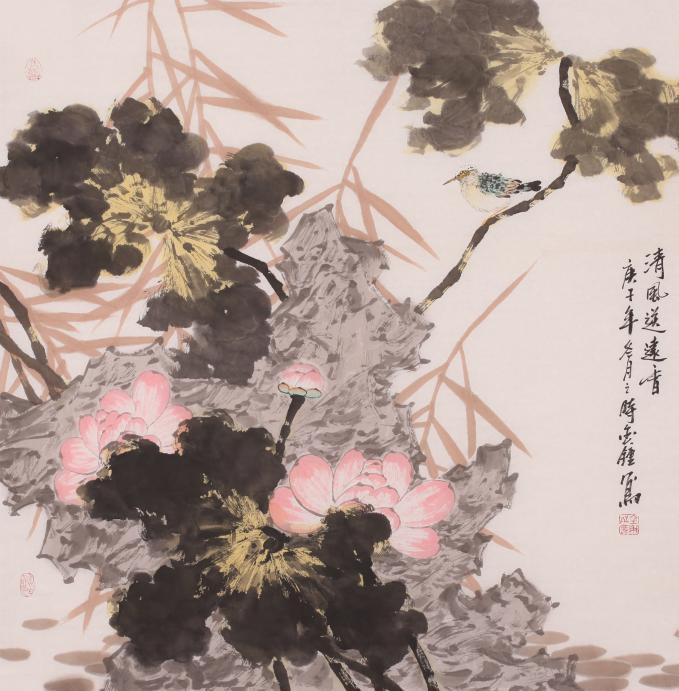 清風送遠香
庚子年冬月之時金鐘寫